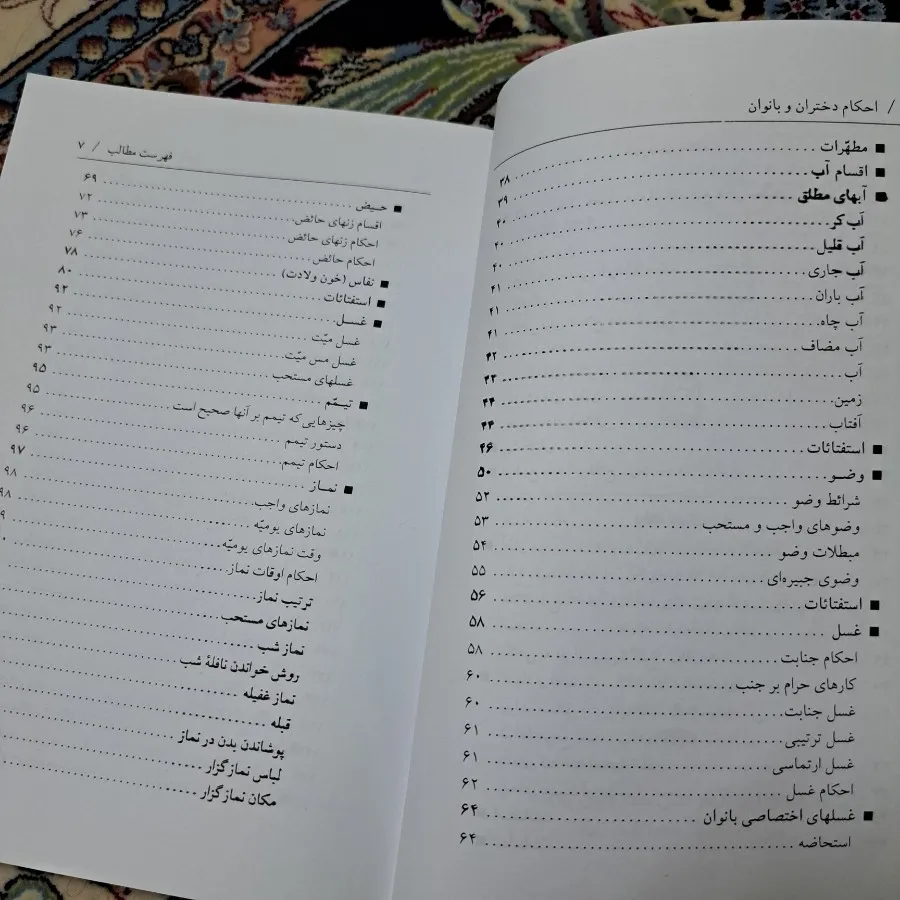 / احکام دختران و بانوان
■ مطهّرات ........ ۳۸
■ اقسام آب ........ ۳۹
■ آبهای مطلق ........ ۴۰
آب کر ........ ۴۰
آب قلیل ........ ۴۰
آب جاری ........ ۴۱
آب باران ........ ۴۱
آب چاه ........ ۴۱
آب مضاف ........ ۴۲
آب ........ ۴۳
زمین ........ ۴۴
آفتاب ........ ۴۴
■ استفتائات ........ ۴۶
■ وضو ........ ۵۰
شرائط وضو ........ ۵۲
وضوهای واجب و مستحب ........ ۵۳
مبطلات وضو ........ ۵۴
وضوی جبیره‌ای ........ ۵۵
■ استفتائات ........ ۵۶
■ غسل ........ ۵۸
احکام جنابت ........ ۵۸
کارهای حرام بر جنب ........ ۶۰
غسل جنابت ........ ۶۰
غسل ترتیبی ........ ۶۱
غسل ارتماسی ........ ۶۱
احکام غسل ........ ۶۲
■ غسلهای اختصاصی بانوان ........ ۶۴
استحاضه ........ ۶۴
فهرست مطالب / ۷
■ حیض ........ ۶۹
اقسام زنهای حائض ........ ۷۲
احکام زنهای حائض ........ ۷۳
احکام حائض ........ ۷۶
■ نفاس (خون ولادت) ........ ۷۸
■ استفتائات ........ ۸۰
■ غسل ........ ۹۲
غسل میّت ........ ۹۲
غسل مس میّت ........ ۹۳
غسلهای مستحب ........ ۹۳
■ تیمّم ........ ۹۵
چیزهایی که تیمم بر آنها صحیح است ........ ۹۵
دستور تیمم ........ ۹۶
احکام تیمم ........ ۹۶
■ نماز ........ ۹۷
نمازهای واجب ........ ۹۸
نمازهای یومیّه ........ ۹۸
وقت نمازهای یومیّه ........
احکام اوقات نماز ........
ترتیب نماز ........
نمازهای مستحب ........
نماز شب ........
روش خواندن نافلۀ شب ........
نماز غفیله ........
قبله ........
پوشاندن بدن در نماز ........
لباس نمازگزار ........
مکان نمازگزار ........